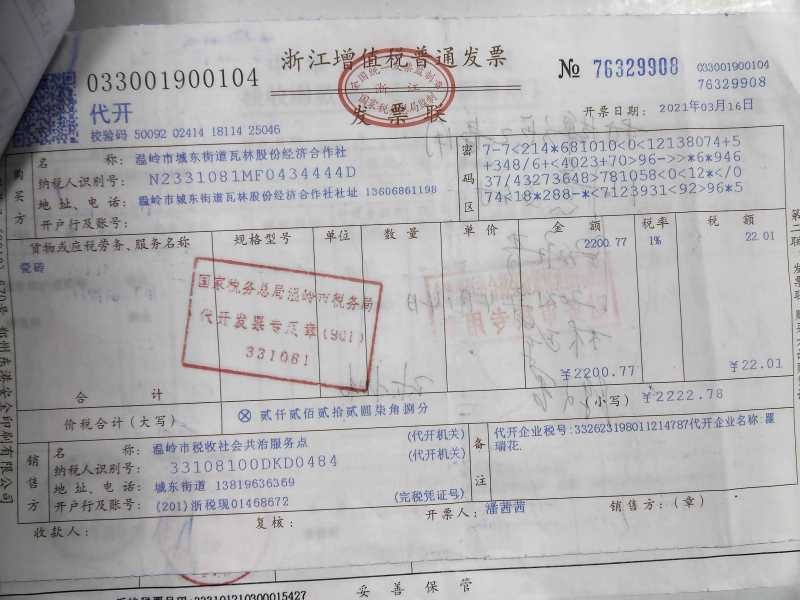 033001900104
浙江增值税普通发票
发票联
№ 76329908
033001900104
76329908
代开
校验码 50092 02414 18114 25046
开票日期: 2021年03月16日
全国统一发票监制章
浙江
国家税务总局监制
购买方
名称: 温岭市城东街道瓦林股份经济合作社
纳税人识别号: N2331081MF0434444D
地址、电话: 温岭市城东街道瓦林股份经济合作社社址 13606861198
开户行及账号:
密码区
7-7<214*681010<0<12138074+5
+348/6+<4023+70>96->>*6*946
37/43273648>781058<0<12*</0
74<18*288-*<7123931<92>96*5
货物或应税劳务、服务名称 规格型号 单位 数量 单价 金额 税率 税额
瓷砖 2200.77 1% 22.01
国家税务总局温岭市税务局
代开发票专用章(901)
331081
合计 ¥2200.77 ¥22.01
价税合计(大写) ⊗ 贰仟贰佰贰拾贰圆柒角捌分 (小写) ¥2222.78
销售方
名称: 温岭市税收社会共治服务点 (代开机关)
纳税人识别号: 33108100DKD0484 (代开机关)
地址、电话: 城东街道 13819636369
开户行及账号: (201)浙税现01468672 (完税凭证号)
备注
代开企业税号:332623198011214787代开企业名称:瞿
瑞花.
收款人: 复核: 开票人: 潘茜茜 销售方:(章)
第二联 发票联
杭州东港安全印刷有限公司
妥善保管